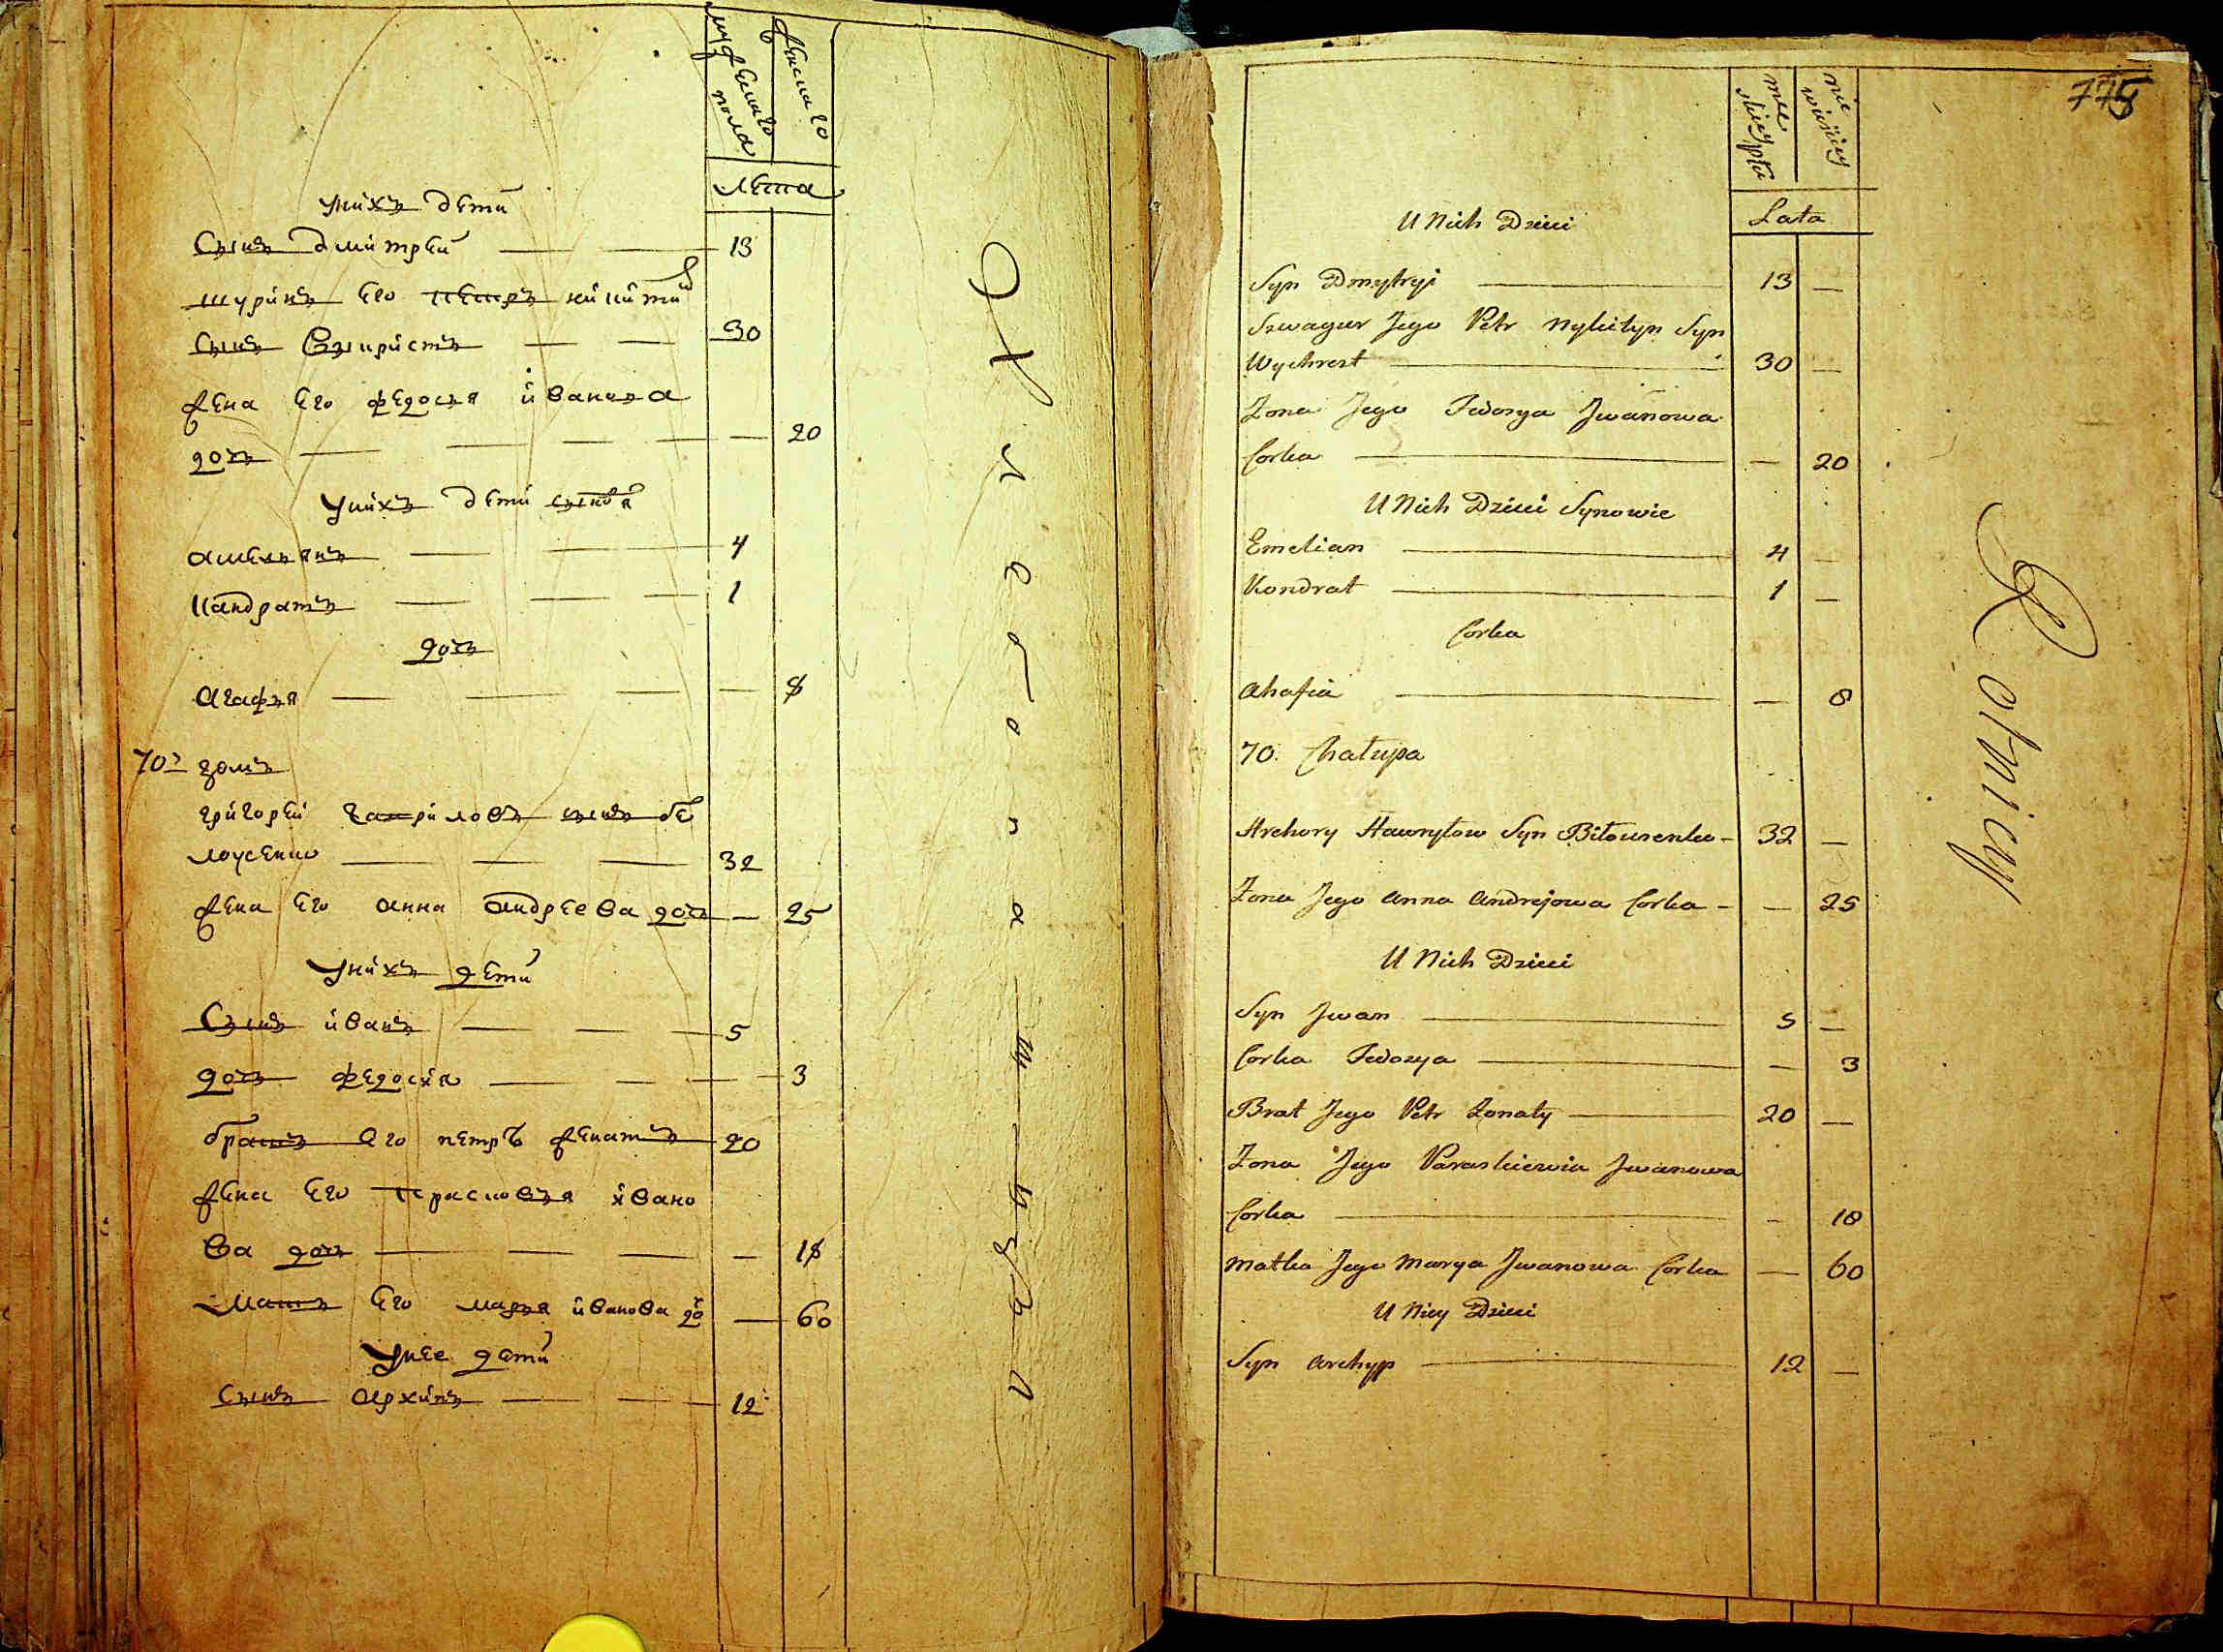 мужескаго пола
женскаго
Лета
у нихъ дети
Сынъ дмитрей — 13
шуринъ его петръ никитин
Сынъ выкристъ — 30
жена его федосья иванова
дочь — 20
у нихъ дети сыновя
амельянъ — 4
кандратъ — 1
дочь
агафья — 8
70й домъ
григорей гавриловъ сынъ бе
лоусенко — 32
жена его анна андреева дочь — 25
у нихъ дети
Сынъ иванъ — 5
дочь федосия — 3
братъ его петръ женатъ 20
жена его прасковья ивано
ва дочь — 18
мать его марья иванова до — 60
у нее дети
сынъ архипъ — 12
Хлебопашцы
775
męskiey płci
niewieściey
Lata
U Nich Dzieci
Syn Dmytryi — 13 —
Szwagier Jego Petr Nykityn Syn
Wychrest — 30 —
Żona Jego Fedosya Jwanowa
Corka — — 20
U Nich Dzieci Synowie
Emelian — 4 —
Kondrat — 1 —
Corka
Ahafia — — 8
70. Chałupa
Hrehory Hawryłow Syn Biłousenko — 32 —
Żona Jego Anna Andrejowa Corka — — 25
U Nich Dzieci
Syn Jwan — 5 —
Corka Fedosya — — 3
Brat Jego Petr Żonaty — 20 —
Żona Jego Paraskiewia Jwanowa
Corka — — 18
Matka Jego Marya Jwanowa Corka — 60
U Niey Dzieci
Syn Archyp — 12 —
Rolnicy